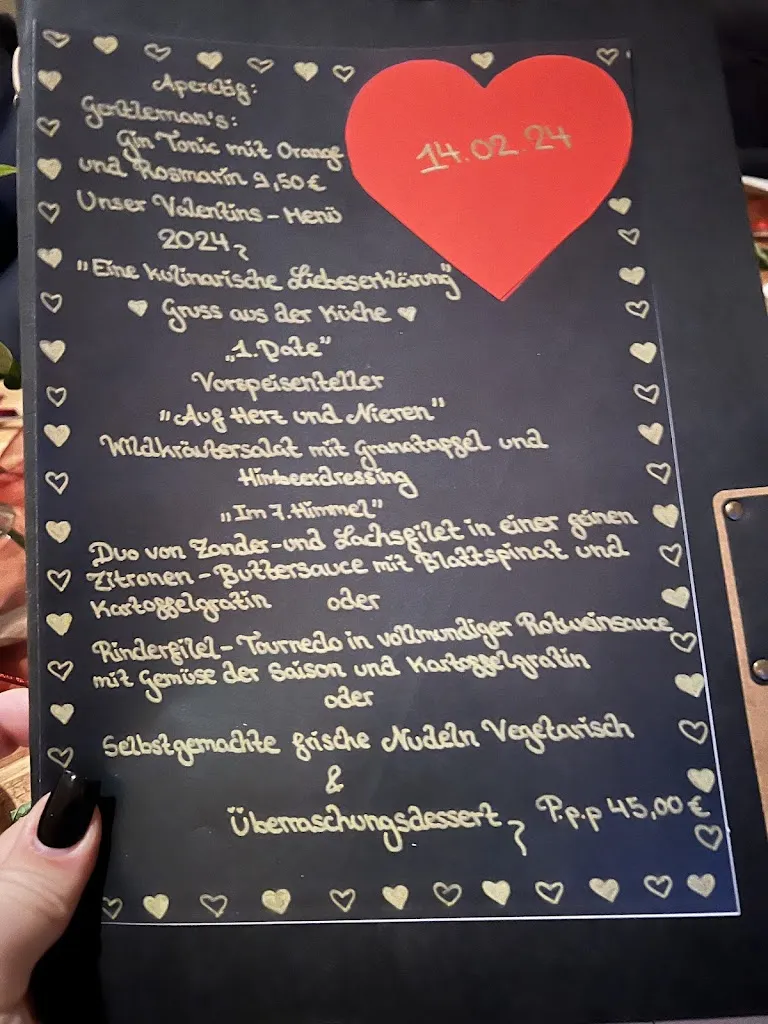 Aperetif:
Gentleman's:
Gin Tonic mit Orange
und Rosmarin 9,50€
14.02.24
Unser Valentins-Menü
2024
"Eine kulinarische Liebeserklärung"
Gruss aus der Küche
„1. Date"
Vorspeisenteller
"Auf Herz und Nieren"
Wildkräutersalat mit Granatapfel und
Himbeerdressing
„Im 7. Himmel"
Duo von Zander-und Lachsfilet in einer feinen
Zitronen-Buttersauce mit Blattspinat und
Kartoffelgratin oder
Rinderfilet-Tourredo in vollmundiger Rotweinsauce
mit Gemüse der Saison und Kartoffelgratin
oder
Selbstgemachte frische Nudeln Vegetarisch
&
Überraschungsdessert P.p.p 45,00€